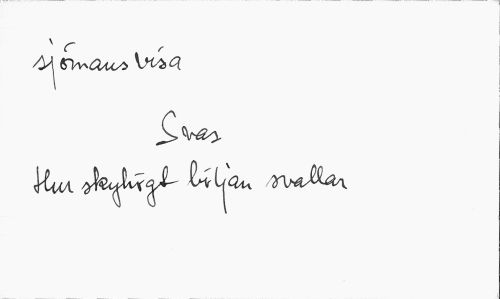 sjömansvisa
Svas
Hur skyhögt böljan svallar